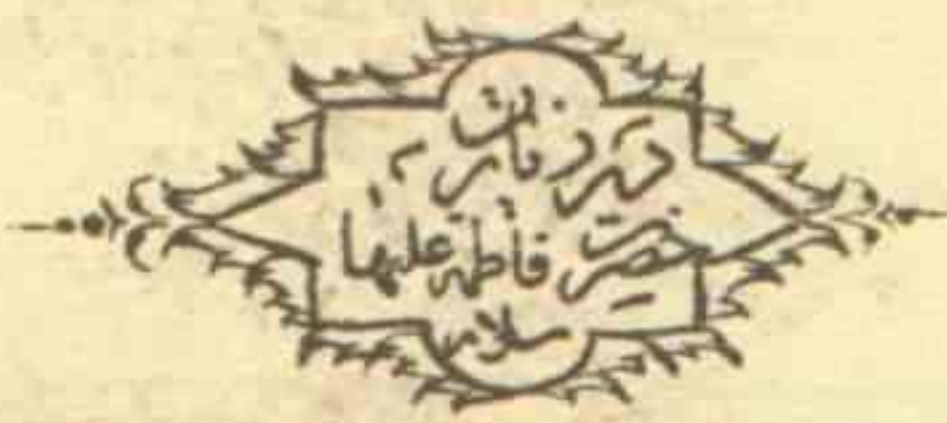 در زیارت
حضرت فاطمه علیها
سلام